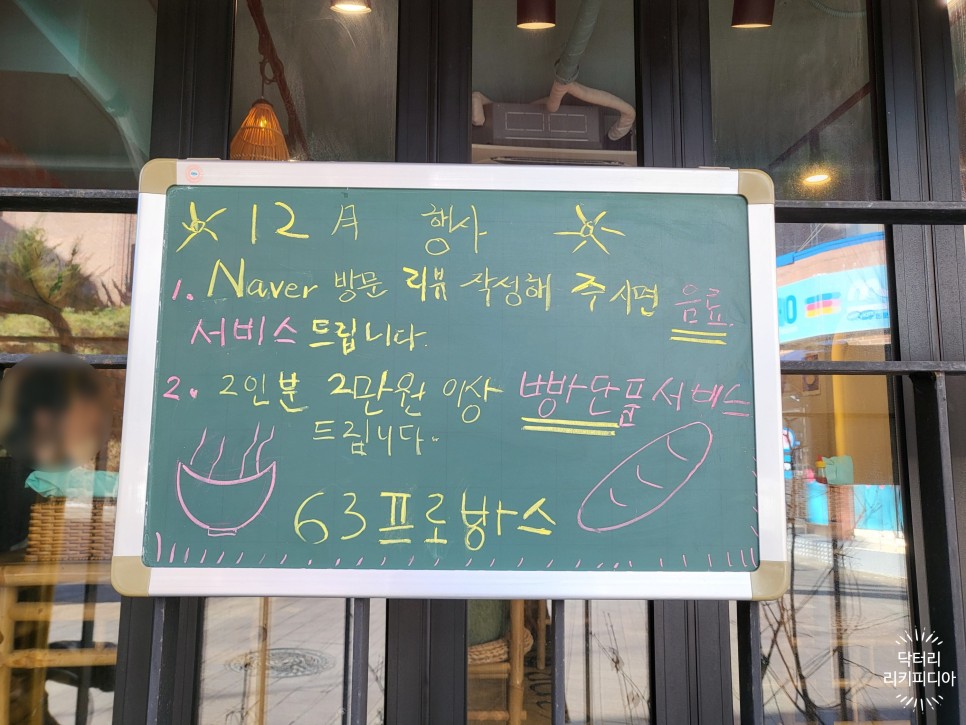 12月 행사
1. Naver 방문 리뷰 작성해 주시면 음료
서비스 드립니다.
2. 2인분 2만원 이상 빵 단품 서비스
드립니다.
63프로방스
닥터리
리키피디아